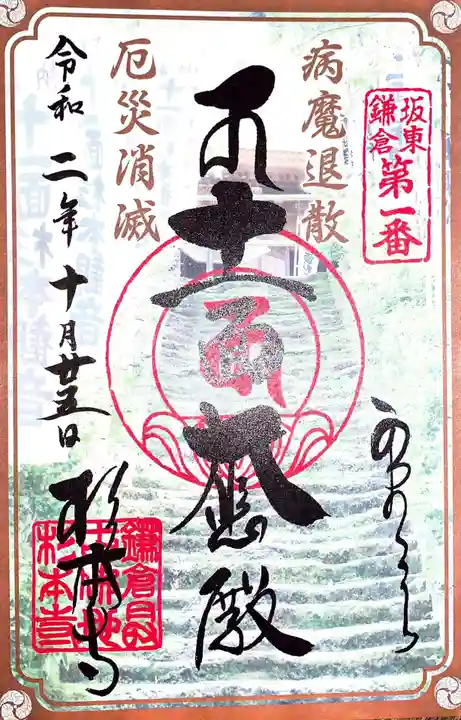 坂東
鎌倉
第一番
病魔退散
十一面大悲殿
厄災消滅
令和二年十月廿五日
杉本寺
鎌倉最
杉本寺